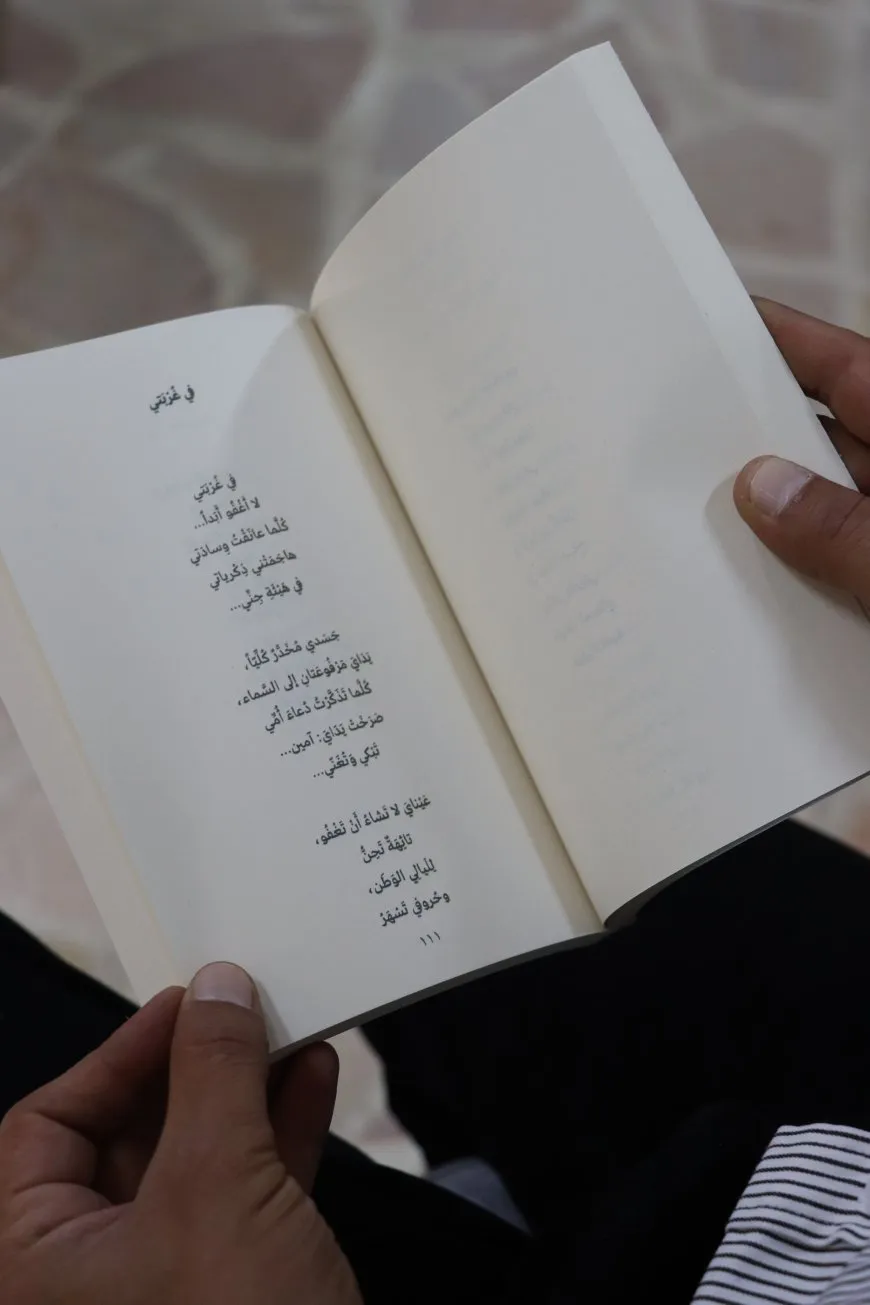 في غُرْبَتي
في غُرْبَتي
لا أَغْفُو أَبَداً...
كُلَّما عانَقْتُ وِسادَتي
هاجَمَتْني ذِكْرياتي
في هَيْئَةِ جِنِّي...
جَسَدي مُخَدَّرٌ كُلِّيّاً،
يَدَايَ مَرْفُوعَتانِ إلى السَّماء،
كُلَّما تَذَكَّرْتُ دُعاءَ أُمِّي
صَرَخَتْ يَدَايَ: آمين...
تَبْكي وَتُغَنّي...
عَيْنايَ لا تَشاءُ أَنْ تَغْفُو،
تائِهَةٌ تَحِنُّ
لِلَيالي الوَطَن،
وحُروفي تَسْهَرُ
١١١